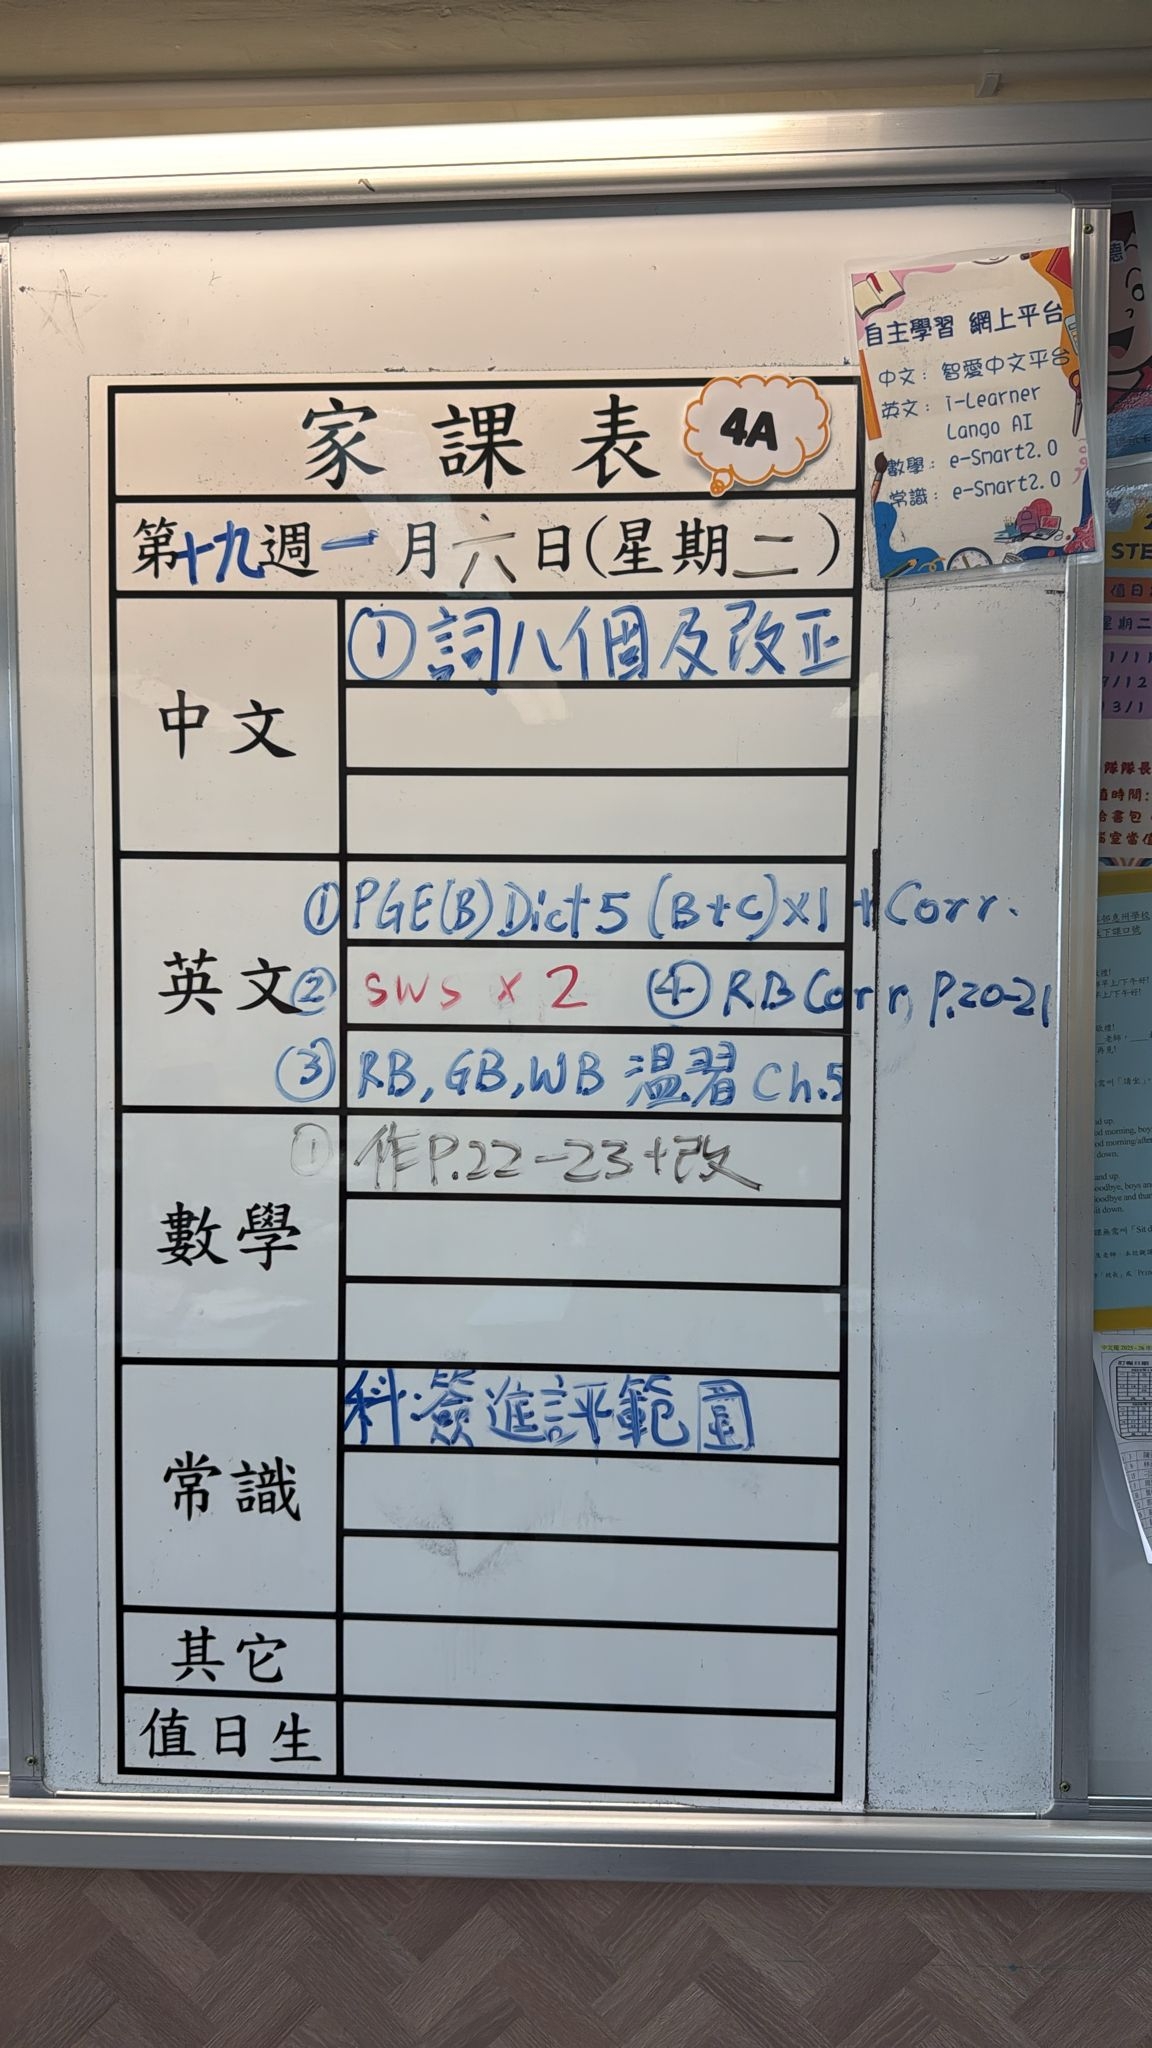 家課表 4A
第十九週一月六日(星期二)
中文
①詞八個及改正
英文
①PGE(B)Dict5 (B+C)×1+Corr.
② sws × 2 ④ R.B Corr, P.20-21
③ RB, GB, WB 溫習 Ch.5
數學
① 作P.22-23+改
常識
科:簽進評範圍
其它
值日生
自主學習 網上平台
中文: 智愛中文平台
英文: i-Learner
Lango AI
數學: e-Smart2.0
常識: e-Smart2.0
STE
值日
星期二
隊隊長
值時間: